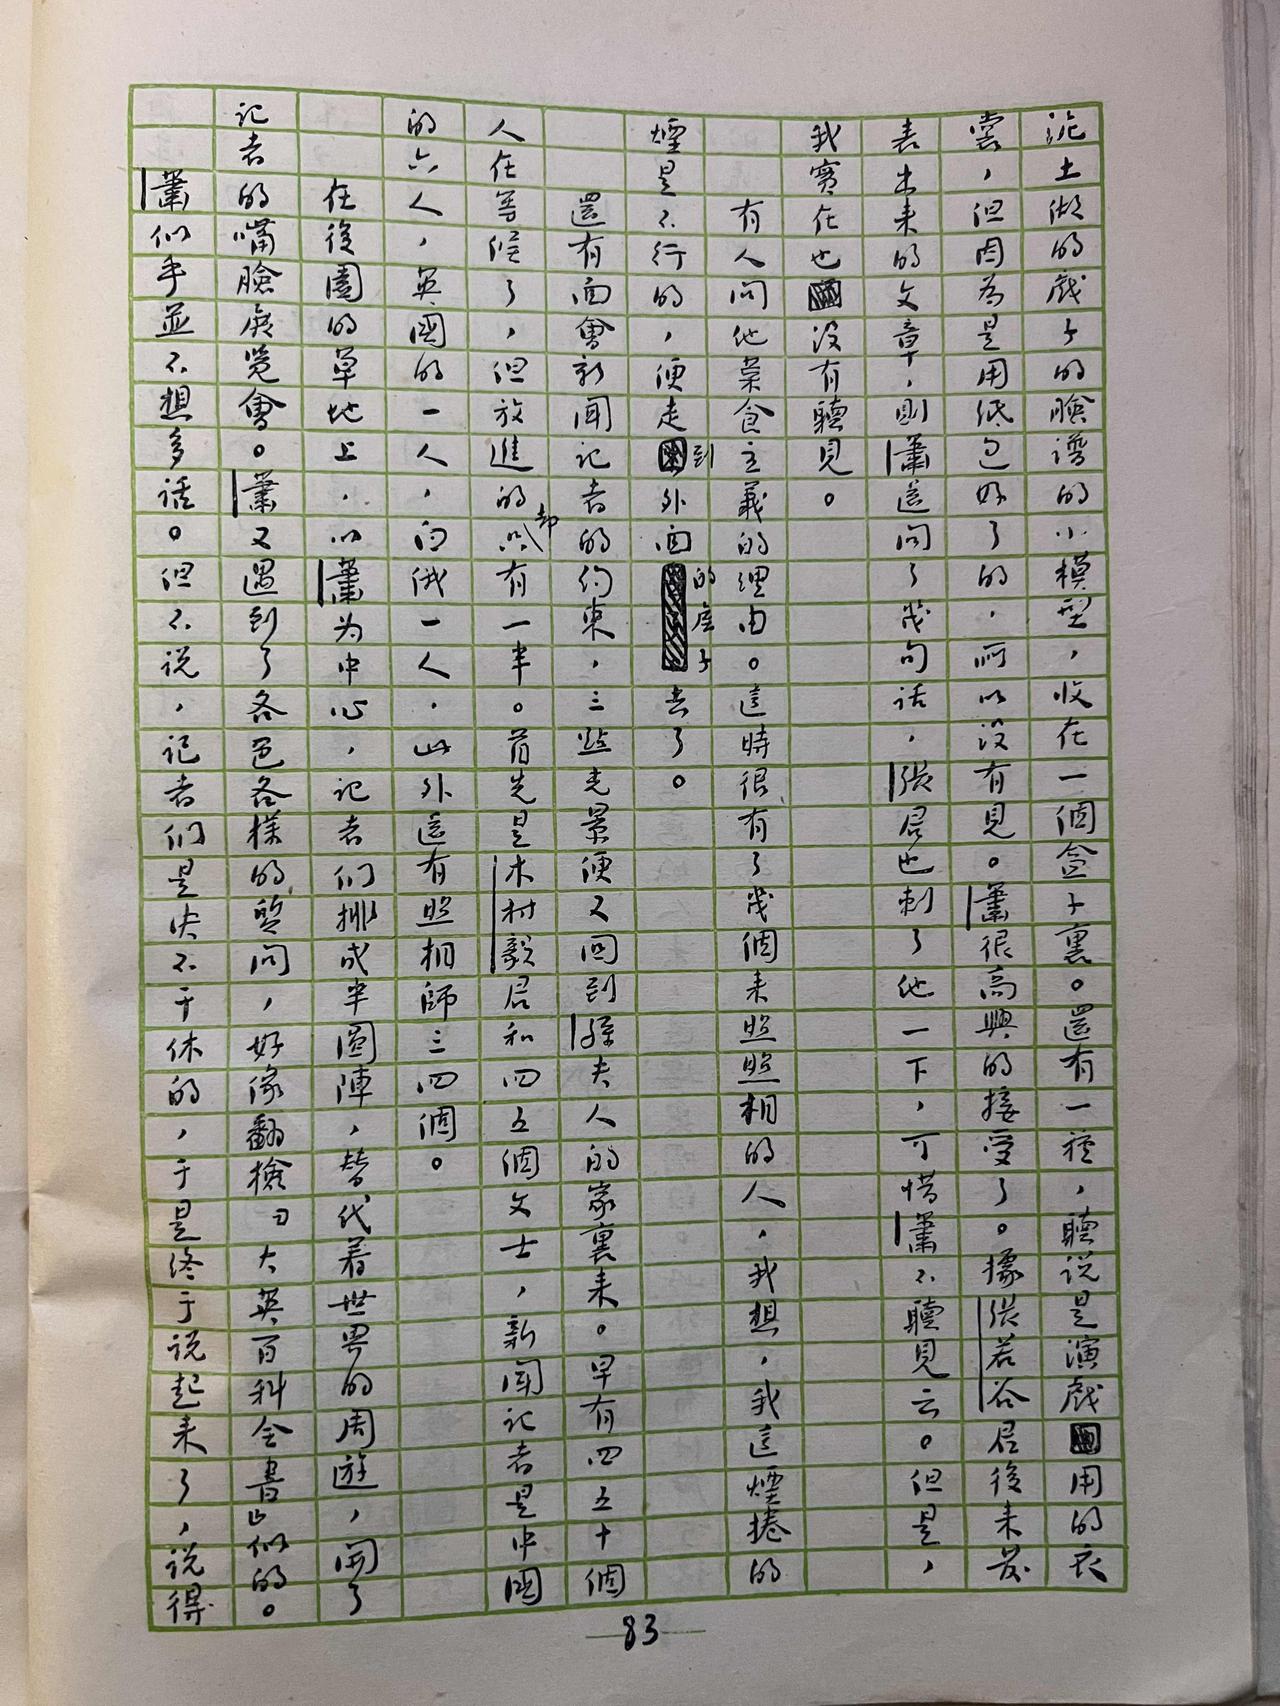 泥土做的戲子的臉譜的小模型，收在一個盒子裏。還有一種，聽说是演戲用的衣
裳，但因为是用纸包好了的，所以没有見。蕭很高興的接受了。據張若谷君後来发
表出来的文章，則蕭還问了幾句话，張君也刺了他一下，可惜蕭不聽見云。但是，
我實在也没有聽見。
有人问他菜食主義的理由。這時很有了幾個来照照相的人，我想，我這煙捲的
煙是不行的，便走到外面的屋子去了。
還有面會新闻记者的约束，三點光景便又回到孫夫人的家裏来。早有四五十個
人在等候了，但放進的却有一半。首先是木村毅君和四五個文士，新闻记者是中國
的六人，英國的一人，白俄一人，此外還有照相師三四個。
在後園的草地上，以蕭为中心，记者们排成半圆陣，替代着世界的周遊，開了
记者的嘴臉展览會。蕭又遇到了各色各樣的質问，好像翻檢『大英百科全書』似的。
蕭似乎並不想多话。但不说，记者们是决不干休的，于是终于说起来了，说得
83